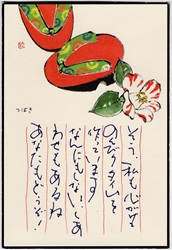 つばき
そう、私も心がけ
のんびりタイムを
作っています
なんにもないしあ
わせもあるね
あなたもどうぞ!